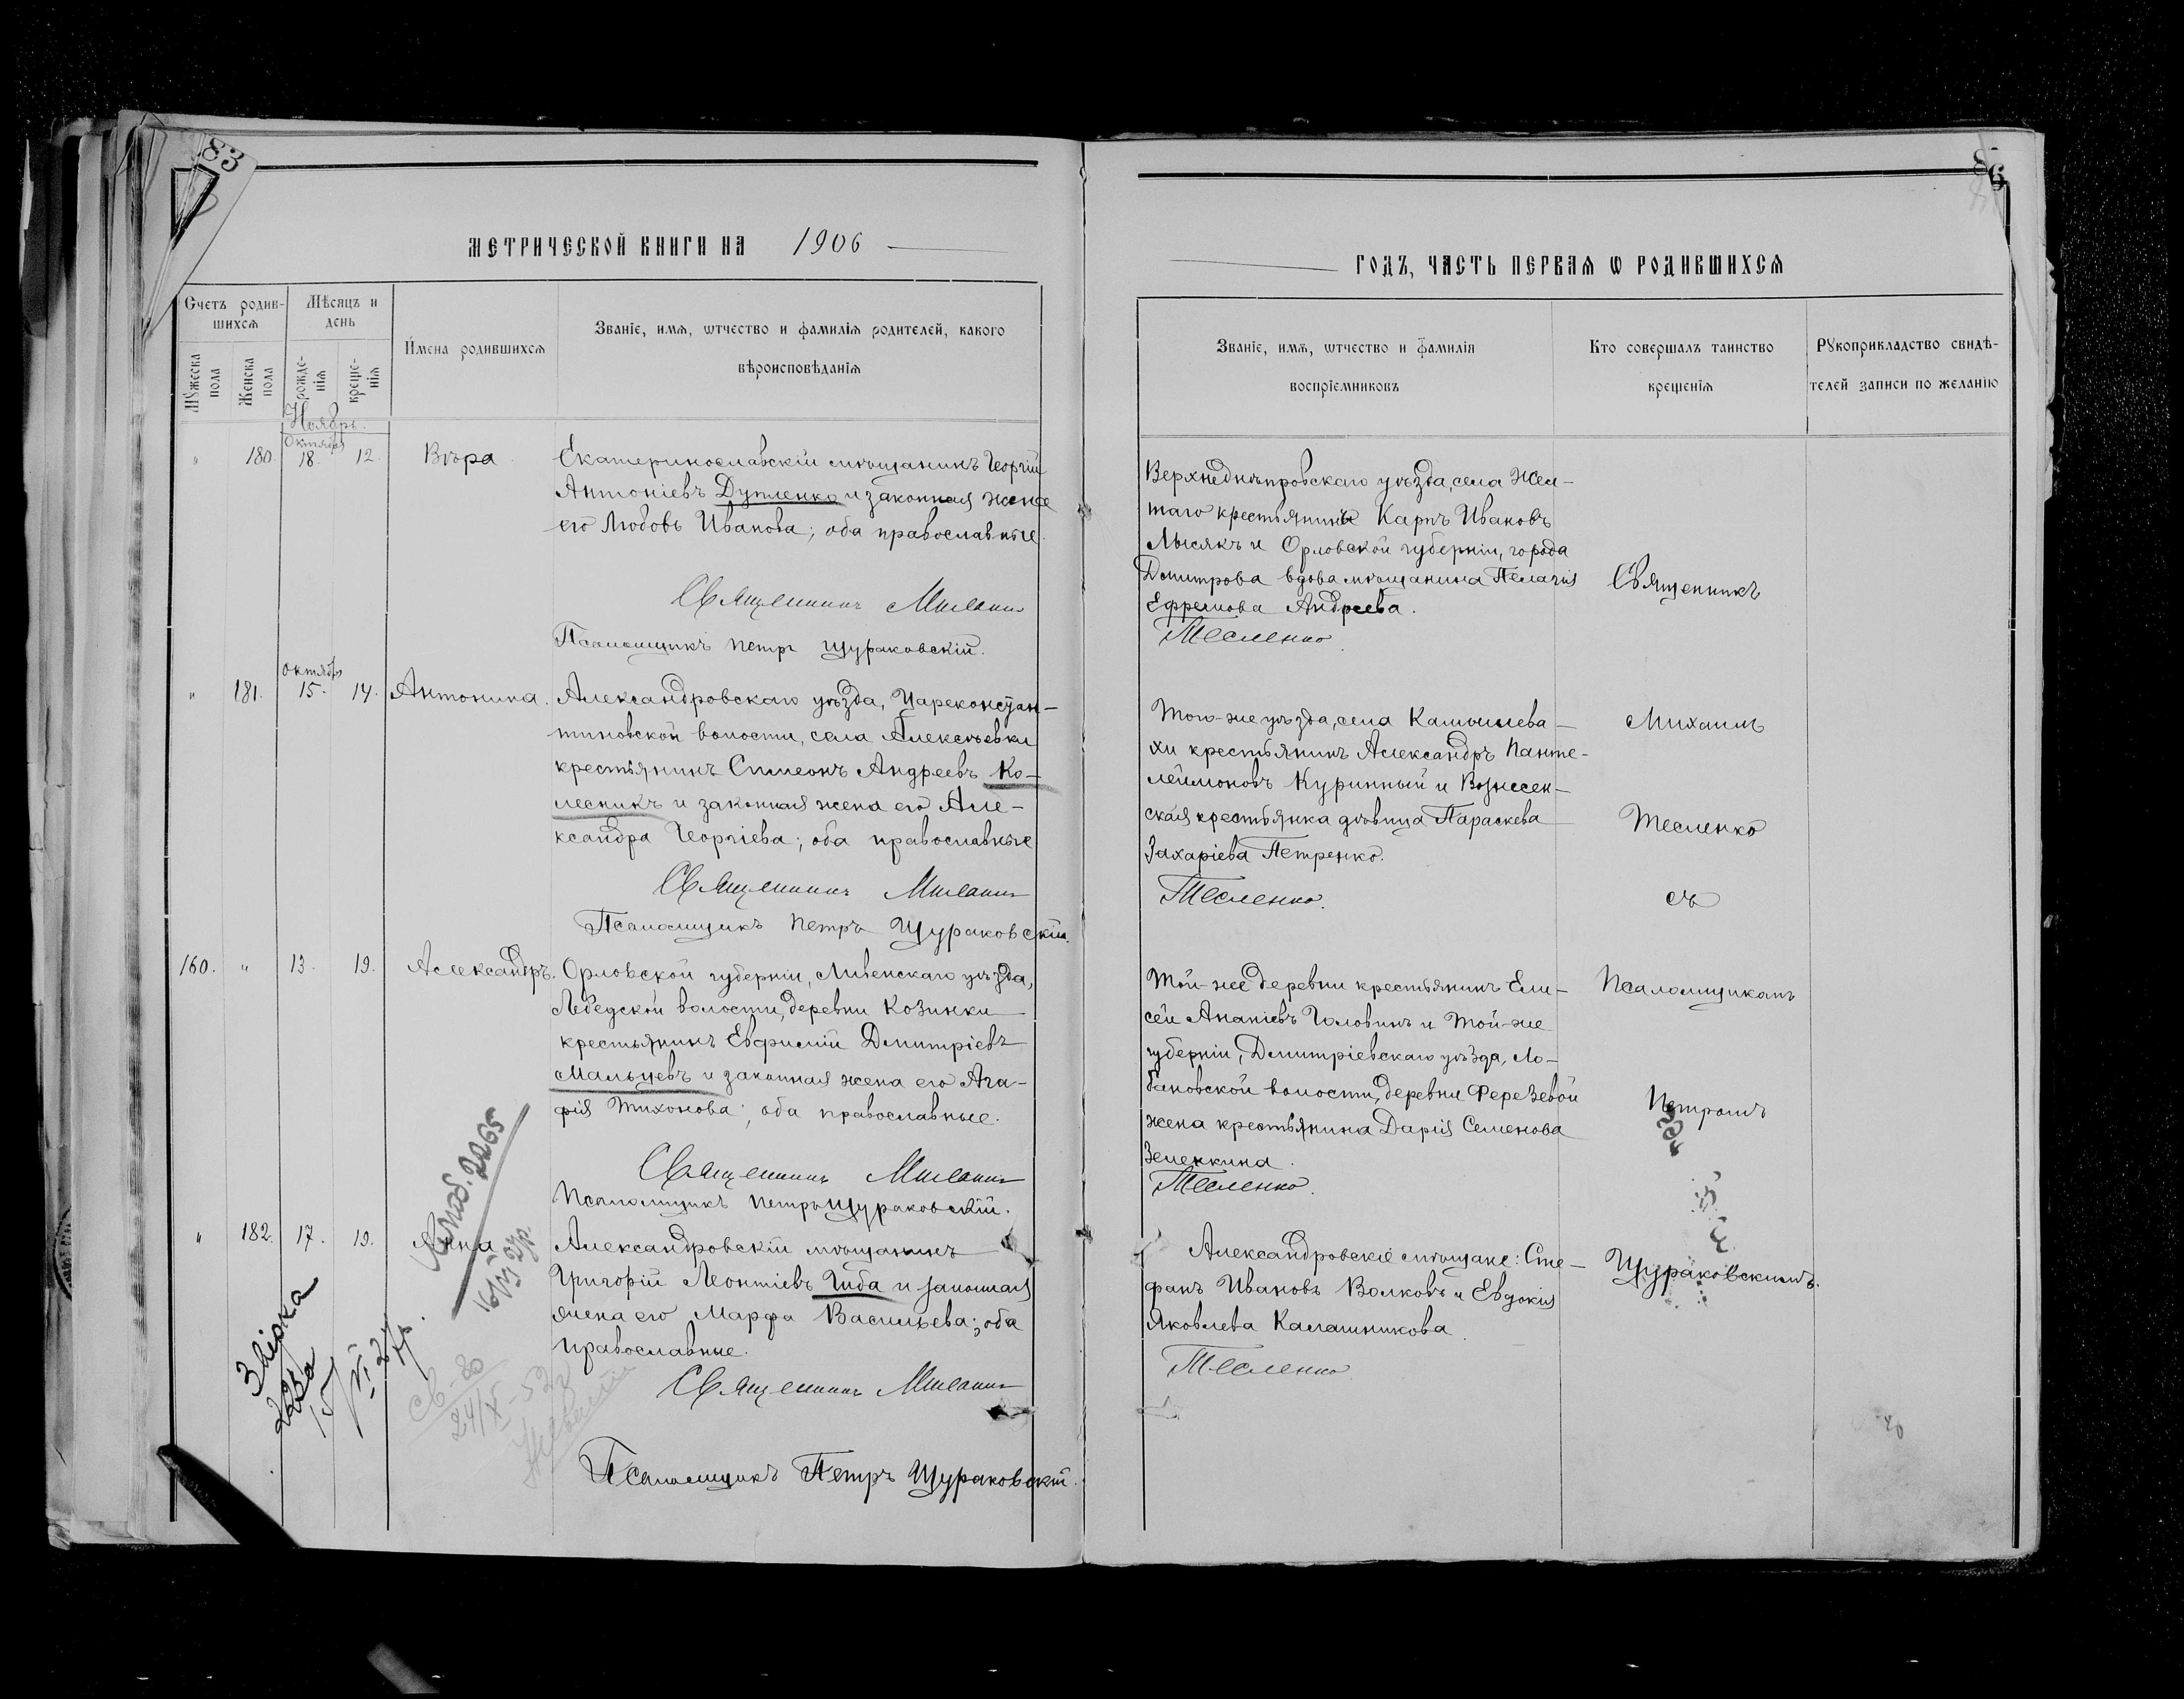 83
МЕТРИЧЕСКОЙ КНИГИ НА 1906
Счетъ родив-
шихся
Мѣсяцъ и
день
Мужеска
пола
Женска
пола
рожде-
нія
креще-
нія
Имена родившихся
Званіе, имя, ѡтчество и фамилія родителей, какого
вѣроисповѣданія
Ноябрь.
" 180. Октября 18. 12. Вѣра
Екатеринославскій мѣщанинъ Георгій
Антоніевъ Дупленко и законная жена
его Любовь Иванова; оба православные.
Священникъ
Псаломщикъ Петръ Щураковскій.
" 181. Октября 15. 14. Антонина.
Александровскаго уѣзда, Цареконстан-
тиновской волости, села Алексѣевки
крестьянинъ Симеонъ Андреевъ Ко-
лесникъ и законная жена его Але-
ксандра Георгіева; оба православные
Священникъ
Псаломщикъ Петръ Щураковскій.
160. " 13. 19. Александръ.
Орловской губерніи, Ливенскаго уѣзда,
Лебедской волости, деревни Козинки
крестьянинъ Евфимій Димитріевъ
Мальцевъ и законная жена его Ага-
фія Тихонова; оба православные.
Священникъ
Псаломщикъ Петръ Щураковскій.
" 182. 17. 19. Анна
Александровскій мѣщанинъ
Григорій Леонтіевъ Гиба и законная
жена его Марфа Васильева; оба
православные.
Священникъ
Псаломщикъ Петръ Щураковскій.
2265
24/X-52г
86
ГОДЪ, ЧАСТЬ ПЕРВАЯ Ѡ РОДИВШИХСЯ
Званіе, имя, ѡтчество и фамилія
воспріемниковъ
Кто совершалъ таинство
крещенія
Рукоприкладство свидѣ-
телей записи по желанію
Верхнеднѣпровскаго уѣзда, села Жел-
таго крестьянинъ Карпъ Ивановъ
Лысякъ и Орловской губерніи, города
Дмитрова вдова мѣщанина Пелагія
Ефремова Андреева.
Тесленко.
Того-же уѣзда, села Камышева-
хи крестьянинъ Александръ Панте-
леймоновъ Куринный и Вознесен-
ская крестьянка дѣвица Параскева
Захаріева Петренко.
Тесленко.
Той-же деревни крестьянинъ Ели-
сей Ананіевъ Головинъ и той-же
губерніи, Димитріевскаго уѣзда, Ло-
бановской волости, деревни Ферезевой
жена крестьянина Дарія Семенова
Зеленкина.
Тесленко.
Александровскіе мѣщане: Сте-
фанъ Ивановъ Волковъ и Евдокія
Яковлева Калашникова.
Тесленко
Священникъ
Михаилъ
Тесленко
съ
Псаломщикомъ
Петромъ
Щураковскимъ.